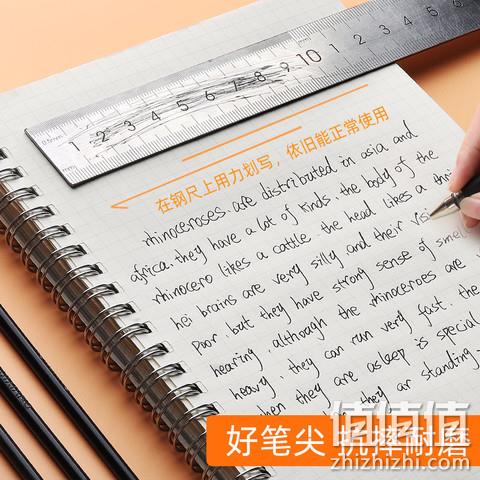 0.5mm
1 2 3 4 5 6 7 8 9 10 1 2 3 4 5
在钢尺上用力划写，依旧能正常使用
rhinoceroses are distributed in asia and
africa. they have a lot of kinds. the body of the
rhinocero likes a cattle. the head likes a
hei brains are very silly and their
poor. but they have strong sense of smell
hearing. although the rhinoceroes are
heavy they can run very fast. the
then they are asleep is special
they ar standing.
好笔尖 抗摔耐磨
值值值
zhizhizhi.com